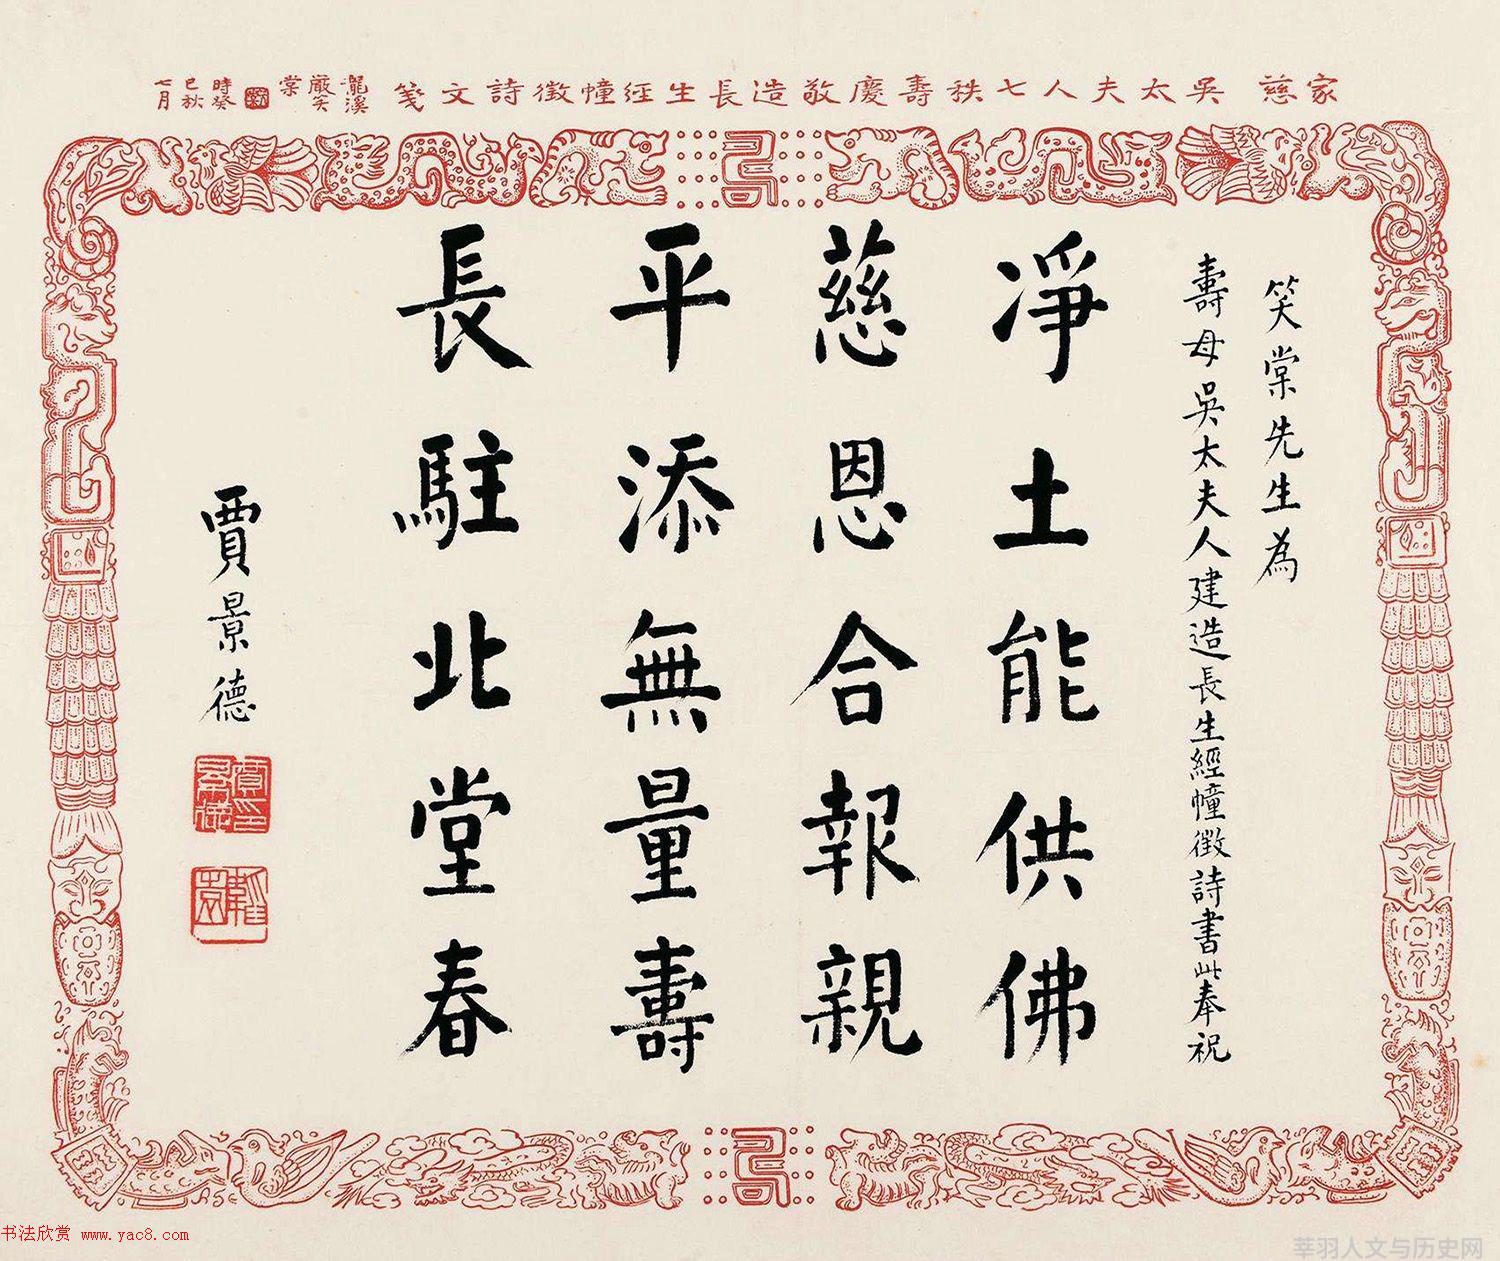 家慈吳太夫人七秩壽慶敬造長生經幢徵詩文箋
瀧溪
嚴笑
棠
時癸
巳秋
七月
笑棠先生為
壽母吳太夫人建造長生經幢徵詩書此奉祝
凈土能供佛
慈恩合報親
平添無量壽
長駐北堂春
賈景德
书法欣赏 www.yac8.com
莘羽人文与历史网